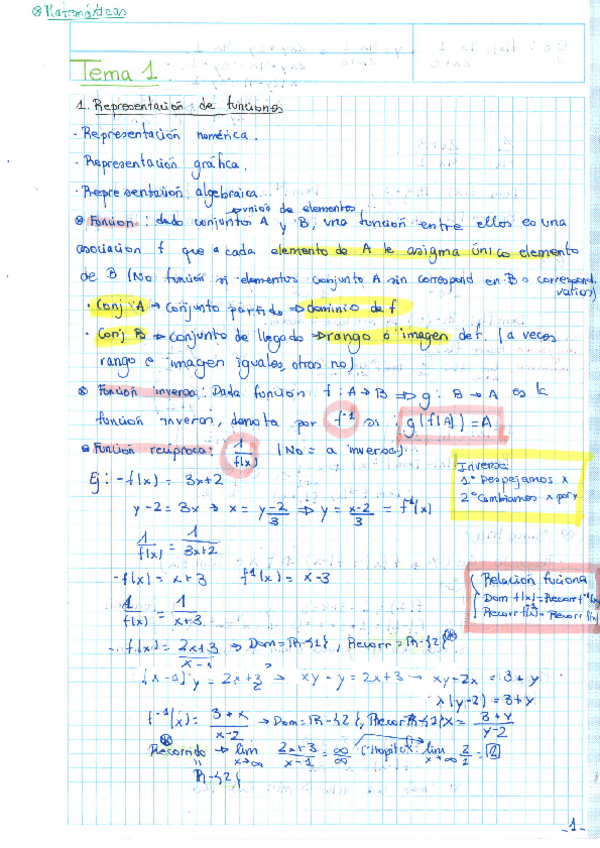 ⊗ Matemáticas
Tema 1:
1. Representación de funciones
· Representación numérica.
· Representación gráfica.
· Representación algebraica.
unión de elementos
⊗ Función: dado conjuntos A y B, una función entre ellos es una
asociación f que a cada elemento de A le asigna único elemento
de B (No función si elementos conjunto A sin correspond en B o correspond.
varios)
· Conj. A → conjunto partido → dominio de f
· Conj B → conjunto de llegado → rango o imagen de f. (a veces
rango e imagen iguales, otras no)
⊗ Función inversa: Dada función f: A → B ⇒ g: B → A es la
función inversa, denota por f⁻¹ si: g(f(A)) = A
⊗ Función recíproca: 1/f(x) (No = a inversa)
Inversa:
1º Despejamos x
2º Cambiamos x por y
Ej: - f(x) = 3x+2
y-2 = 3x → x = y-2/3 ⇒ y = x-2/3 = f⁻¹(x)
1/f(x) = 1/3x+2
- f(x) = x+3 f⁻¹(x) = x-3
Relación funciona
Dom f(x) = Recorr f⁻¹(x)
1/f(x) = 1/x+3
- f(x) = 2x+3/x-1 → Dom = R-{1}, Recorr = R-{2} ⊗
(x-1)y = 2x+3 → xy-y = 2x+3 → xy-2x = 3+y
x(y-2) = 3+y
f⁻¹(x) = 3+x/x-2 → Dom = R-{2}, Recor R-{1} x = 3+y/y-2
⊗ Recorrido → lim x→∞ 2x+3/x-1 = ∞/∞ L'Hopital lim x→∞ 2/1 = 2
R-{2}
-1-